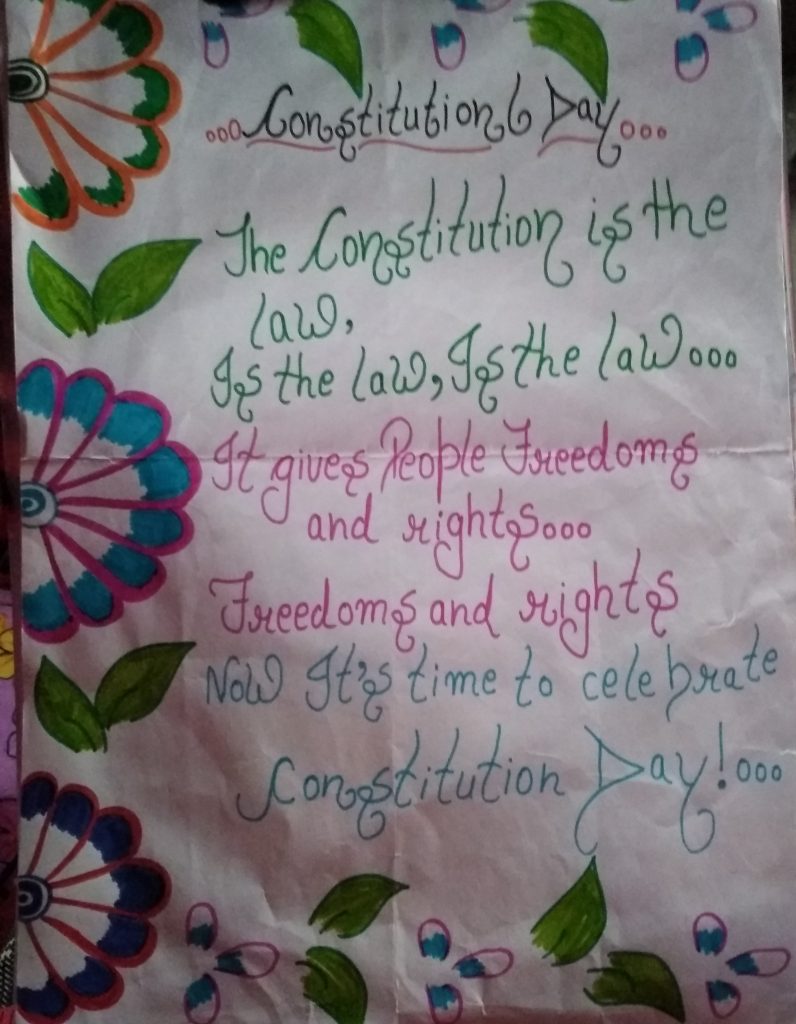 ...Constitution Day...
The Constitution is the
law,
Is the law, Is the law...
It gives People Freedoms
and rights...
Freedoms and rights
Now It's time to celebrate
Constitution Day!...